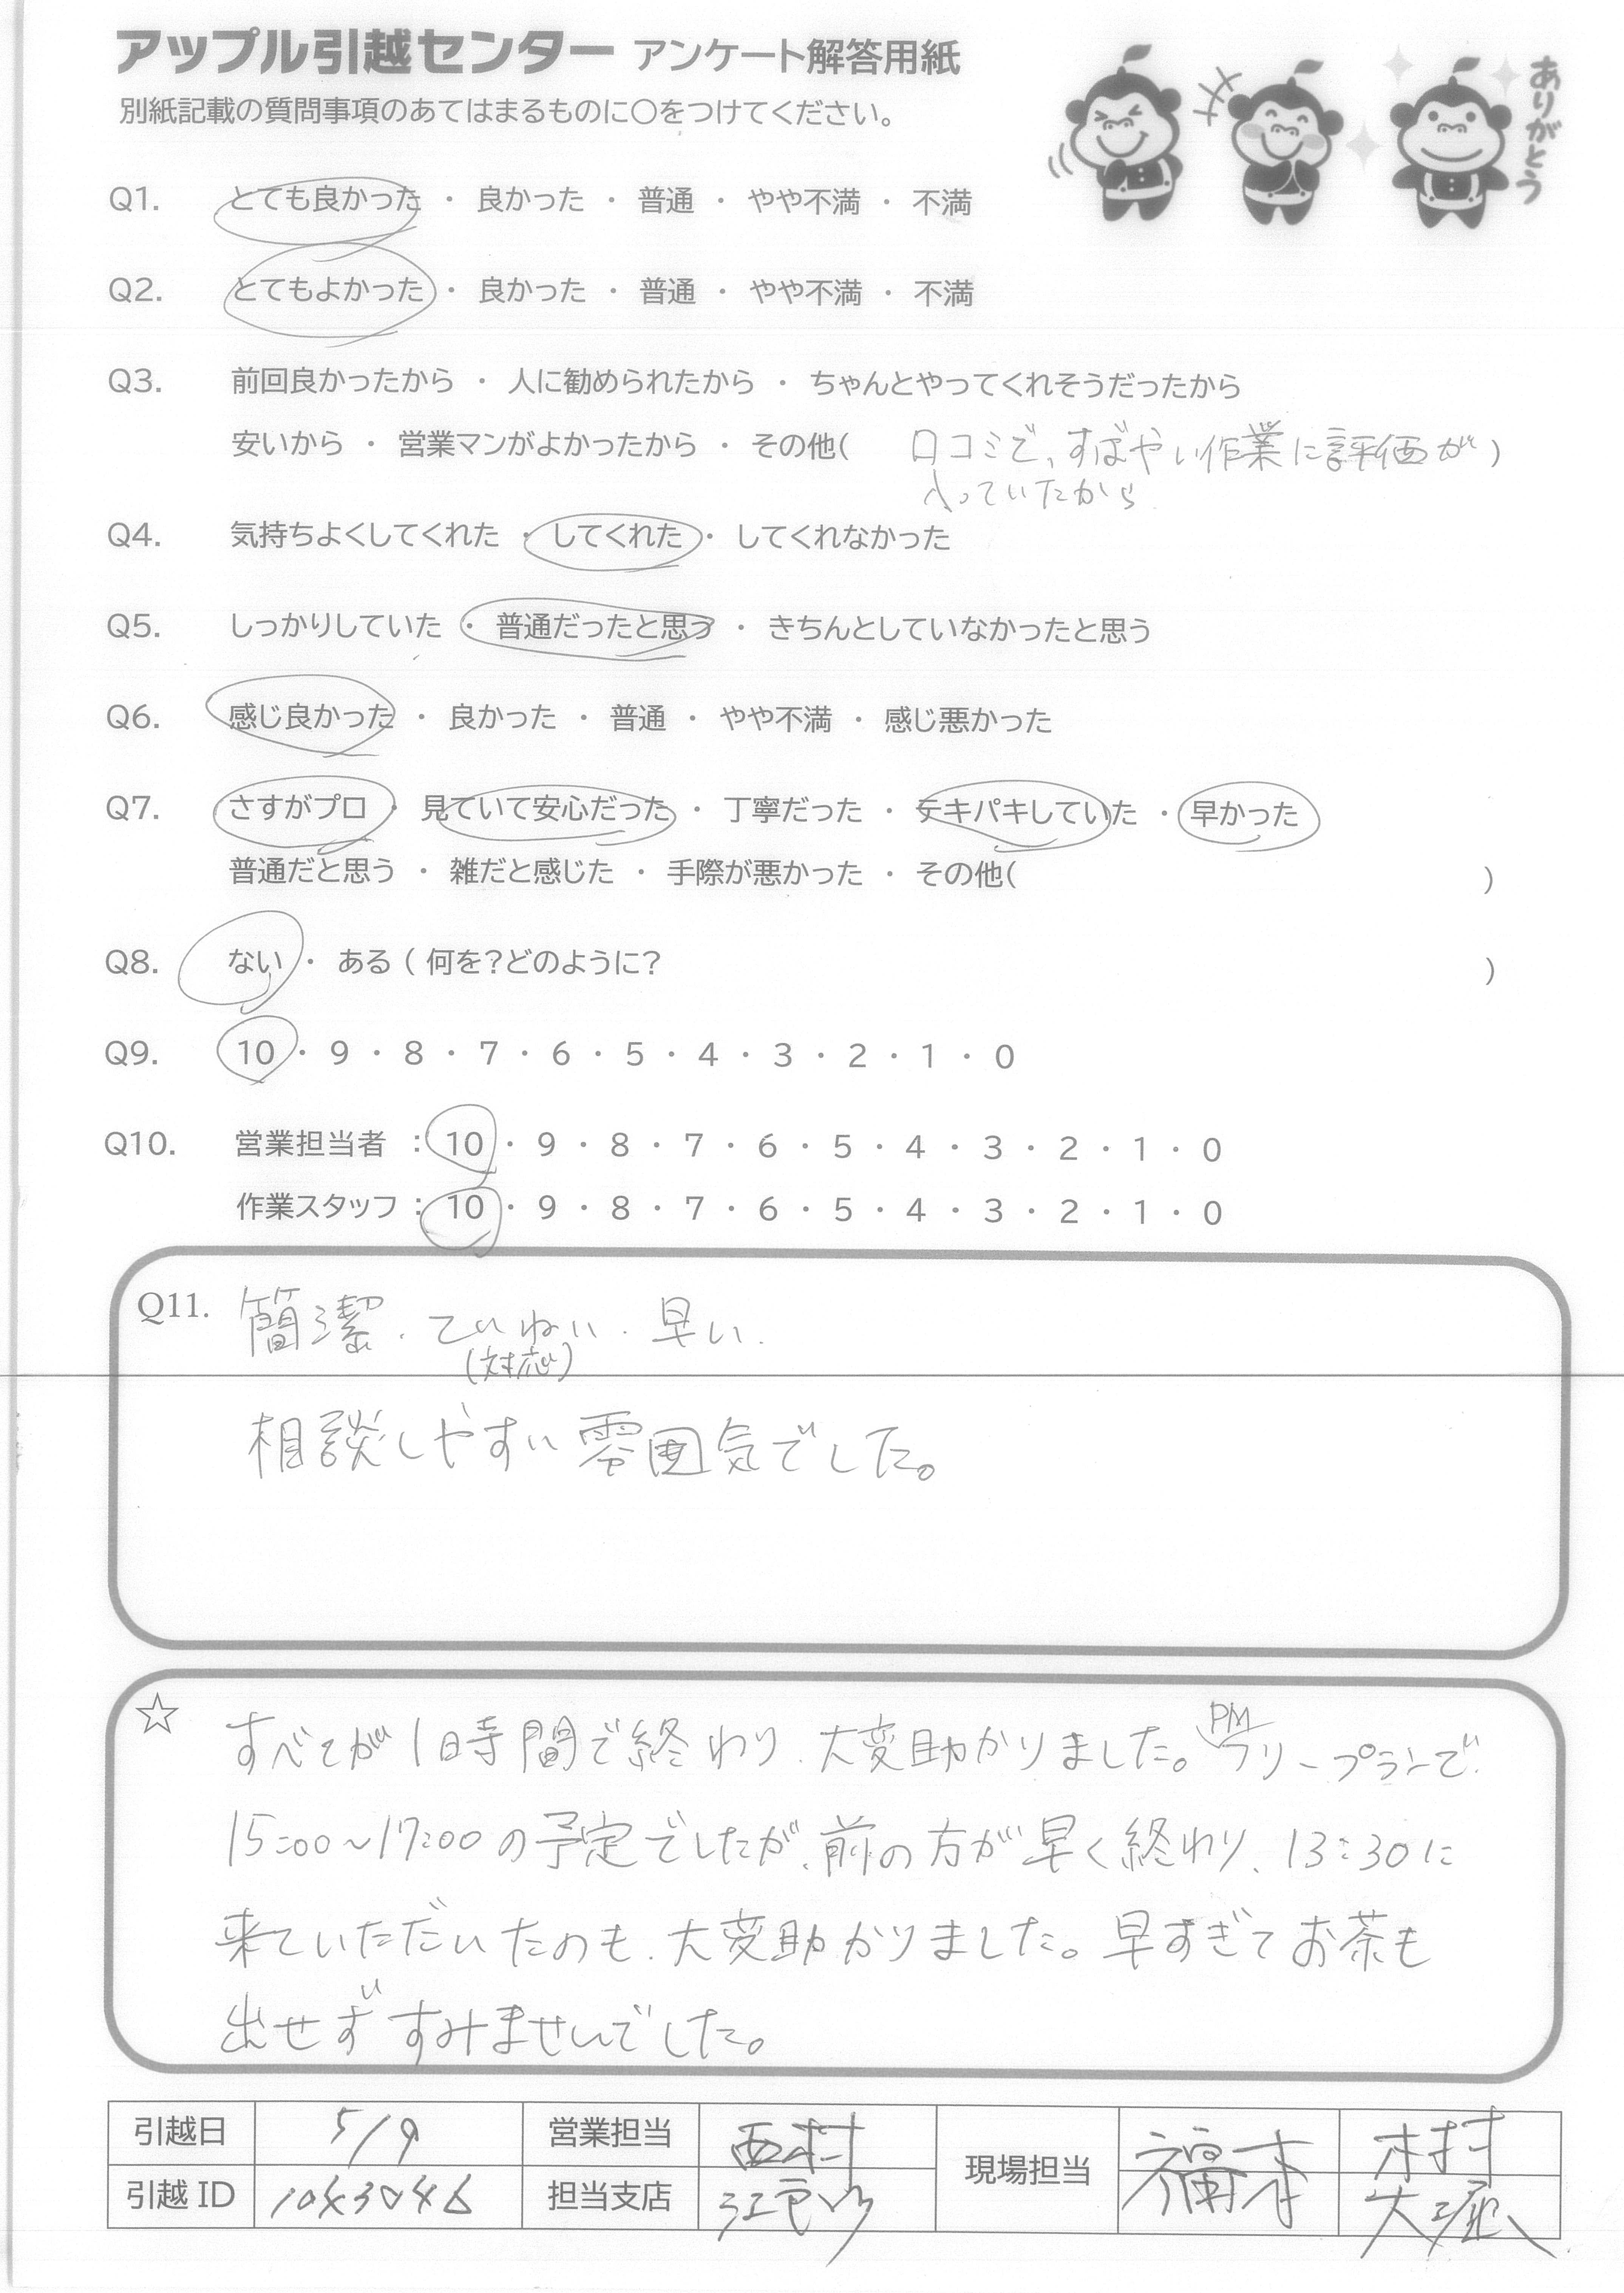 アップル引越センター アンケート解答用紙
別紙記載の質問事項のあてはまるものに〇をつけてください。
ありがとう
Q1. とても良かった ・ 良かった ・ 普通 ・ やや不満 ・ 不満
Q2. とてもよかった ・ 良かった ・ 普通 ・ やや不満 ・ 不満
Q3. 前回良かったから ・ 人に勧められたから ・ ちゃんとやってくれそうだったから
安いから ・ 営業マンがよかったから ・ その他( 口コミで、すばやい作業に評価が )
入っていたから
Q4. 気持ちよくしてくれた ・ してくれた ・ してくれなかった
Q5. しっかりしていた ・ 普通だったと思う ・ きちんとしていなかったと思う
Q6. 感じ良かった ・ 良かった ・ 普通 ・ やや不満 ・ 感じ悪かった
Q7. さすがプロ ・ 見ていて安心だった ・ 丁寧だった ・ テキパキしていた ・ 早かった
普通だと思う ・ 雑だと感じた ・ 手際が悪かった ・ その他( )
Q8. ない ・ ある ( 何を?どのように? )
Q9. 10 ・ 9 ・ 8 ・ 7 ・ 6 ・ 5 ・ 4 ・ 3 ・ 2 ・ 1 ・ 0
Q10. 営業担当者 : 10 ・ 9 ・ 8 ・ 7 ・ 6 ・ 5 ・ 4 ・ 3 ・ 2 ・ 1 ・ 0
作業スタッフ : 10 ・ 9 ・ 8 ・ 7 ・ 6 ・ 5 ・ 4 ・ 3 ・ 2 ・ 1 ・ 0
Q11. 簡潔・ていねい・早い.
(対応)
相談しやすい雰囲気でした。
☆ すべてが1時間で終わり、大変助かりました。PMフリープランで
15:00～17:00の予定でしたが、前の方が早く終わり、13:30に
来ていただいたのも、大変助かりました。早すぎてお茶も
出せずすみませんでした。
引越日 5/9 営業担当 西村 現場担当 福本 木村
引越ID 1043046 担当支店 大堀